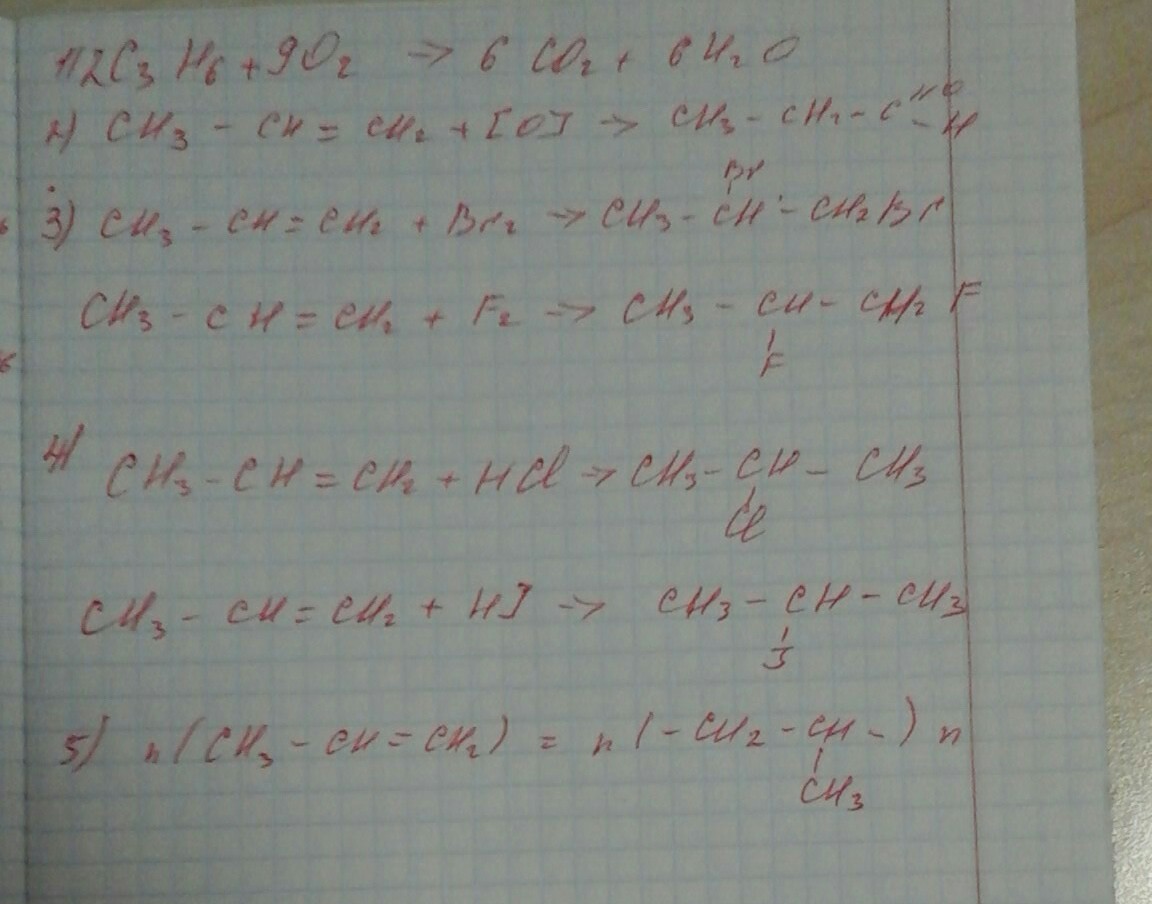 1) 2C₃H₆ + 9O₂ → 6CO₂ + 6H₂O
2) CH₃ - CH = CH₂ + [O] → CH₃ - CH₂ - C =O - H
Br
3) CH₃ - CH = CH₂ + Br₂ → CH₃ - CH - CH₂Br
CH₃ - CH = CH₂ + F₂ → CH₃ - CH - CH₂F
F
4) CH₃ - CH = CH₂ + HCl → CH₃ - CH - CH₃
Cl
CH₃ - CH = CH₂ + HJ → CH₃ - CH - CH₃
J
5) n(CH₃ - CH = CH₂) = n(-CH₂ - CH -)n
CH₃